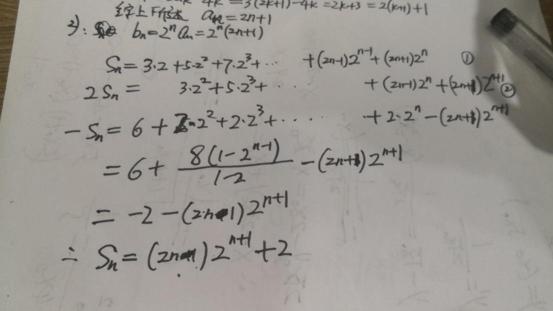 4k = 3(2k+1)-4k = 2k+3 = 2(k+1)+1
综上所述 aₙ=2n+1
bₙ=2ⁿaₙ=2ⁿ(2n+1)
Sₙ=3·2+5·2²+7·2³+… +(2n-1)2ⁿ⁻¹+(2n+1)2ⁿ ①
2Sₙ= 3·2²+5·2³+… +(2n-1)2ⁿ+(2n+1)2ⁿ⁺¹ ②
-Sₙ=6+2·2²+2·2³+…… +2·2ⁿ-(2n+1)2ⁿ⁺¹
=6+8(1-2ⁿ⁻¹)/(1-2)-(2n+1)2ⁿ⁺¹
=-2-(2n-1)2ⁿ⁺¹
∴ Sₙ=(2n-1)2ⁿ⁺¹+2